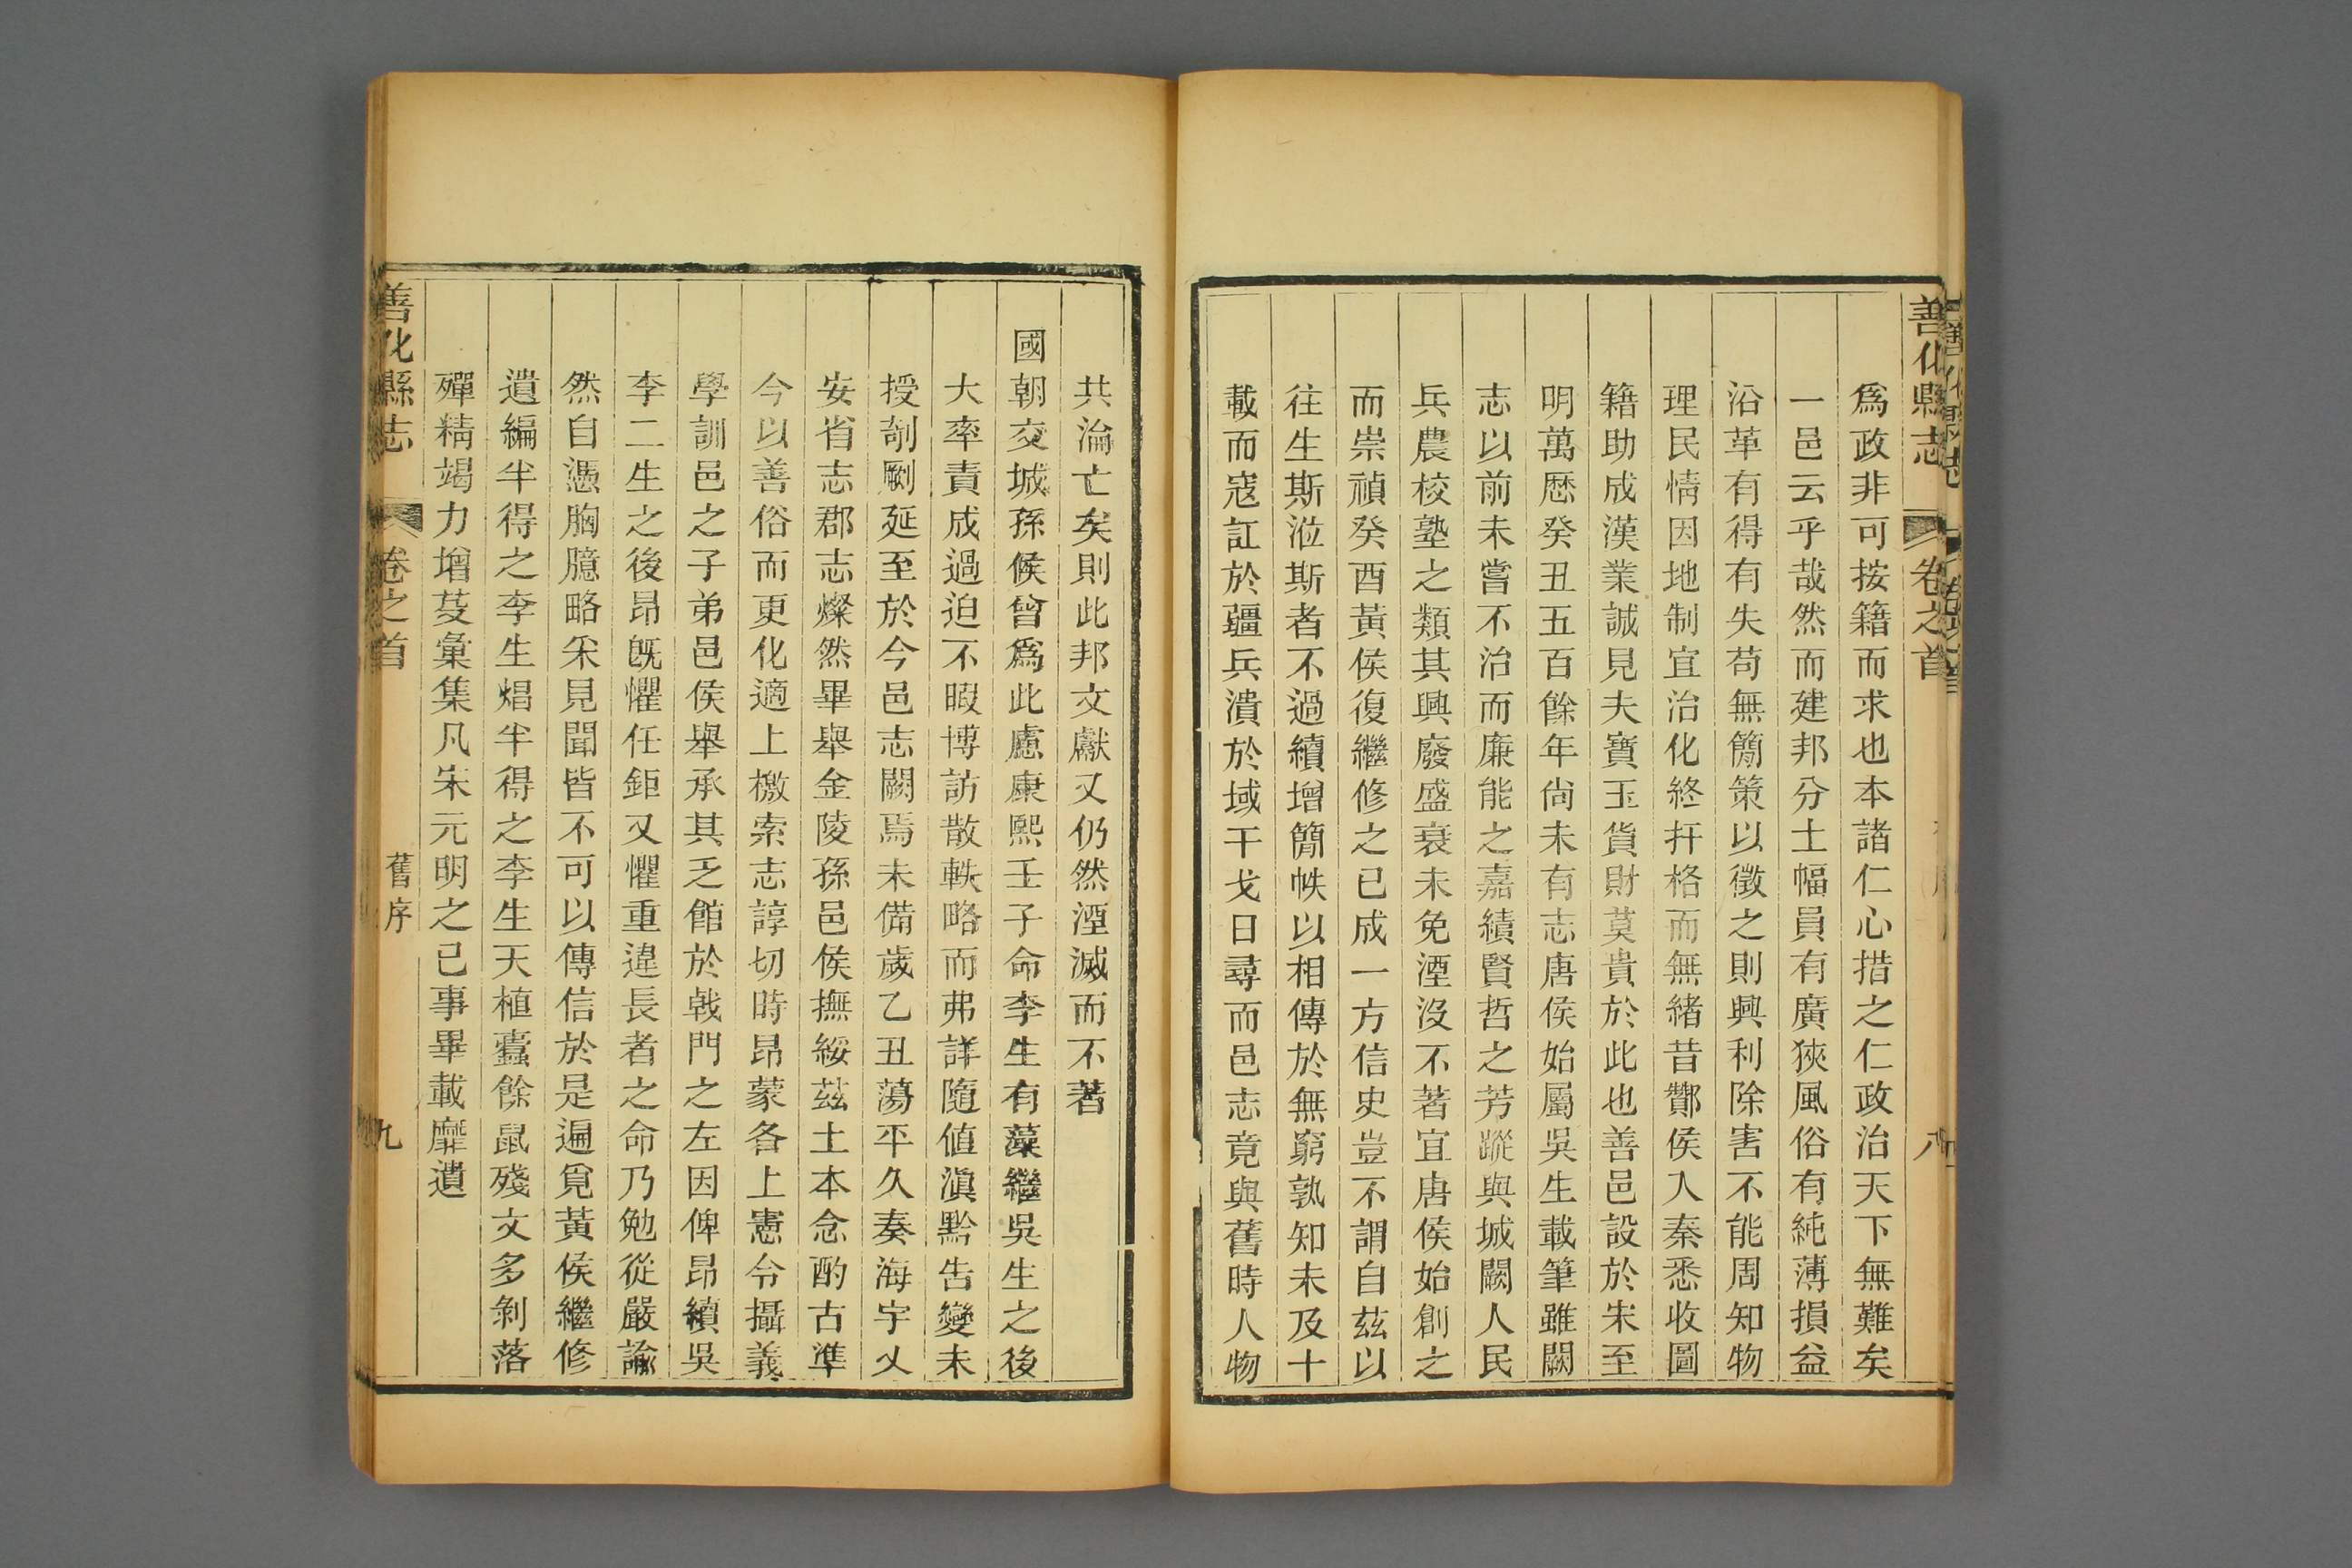 善化縣志 卷之首 八
爲政非可按籍而求也本諸仁心措之仁政治天下無難矣
一邑云乎哉然而建邦分土幅員有廣狹風俗有純薄損益
沿革有得有失苟無簡策以徵之則興利除害不能周知物
理民情因地制宜治化終扞格而無緒昔酇侯入秦悉收圖
籍助成漢業誠見夫寶玉貨財莫貴於此也善邑設於宋至
明萬厯癸丑五百餘年尙未有志唐侯始屬吳生載筆雖闕
志以前未嘗不治而廉能之嘉績賢哲之芳蹤與城闕人民
兵農校塾之類其興廢盛衰未免湮沒不著宜唐侯始創之
而崇禎癸酉黃侯復繼修之已成一方信史豈不謂自茲以
往生斯涖斯者不過續增簡帙以相傳於無窮孰知未及十
載而寇訌於疆兵潰於域干戈日尋而邑志竟與舊時人物
共淪亡矣則此邦文獻又仍然湮滅而不著
國朝交城孫侯曾爲此慮康熙壬子命李生有藻繼吳生之後
大率責成過迫不暇博訪散軼略而弗詳隨值滇黔告變未
授剞劂延至於今邑志闕焉未備歲乙丑蕩平久奏海宇乂
安省志郡志燦然畢舉金陵孫邑侯撫綏茲土本念酌古準
今以善俗而更化適上檄索志諄切時昂蒙各上憲令攝義
學訓邑之子弟邑侯舉承其乏館於戟門之左因俾昂續吳
李二生之後昂旣懼任鉅又懼重違長者之命乃勉從嚴諭
然自憑胸臆略采見聞皆不可以傳信於是遍覓黃侯繼修
遺編半得之李生焻半得之李生天植蠹餘鼠殘文多剝落
殫精竭力增芟彙集凡宋元明之已事畢載靡遺
善化縣志 卷之首 舊序 九